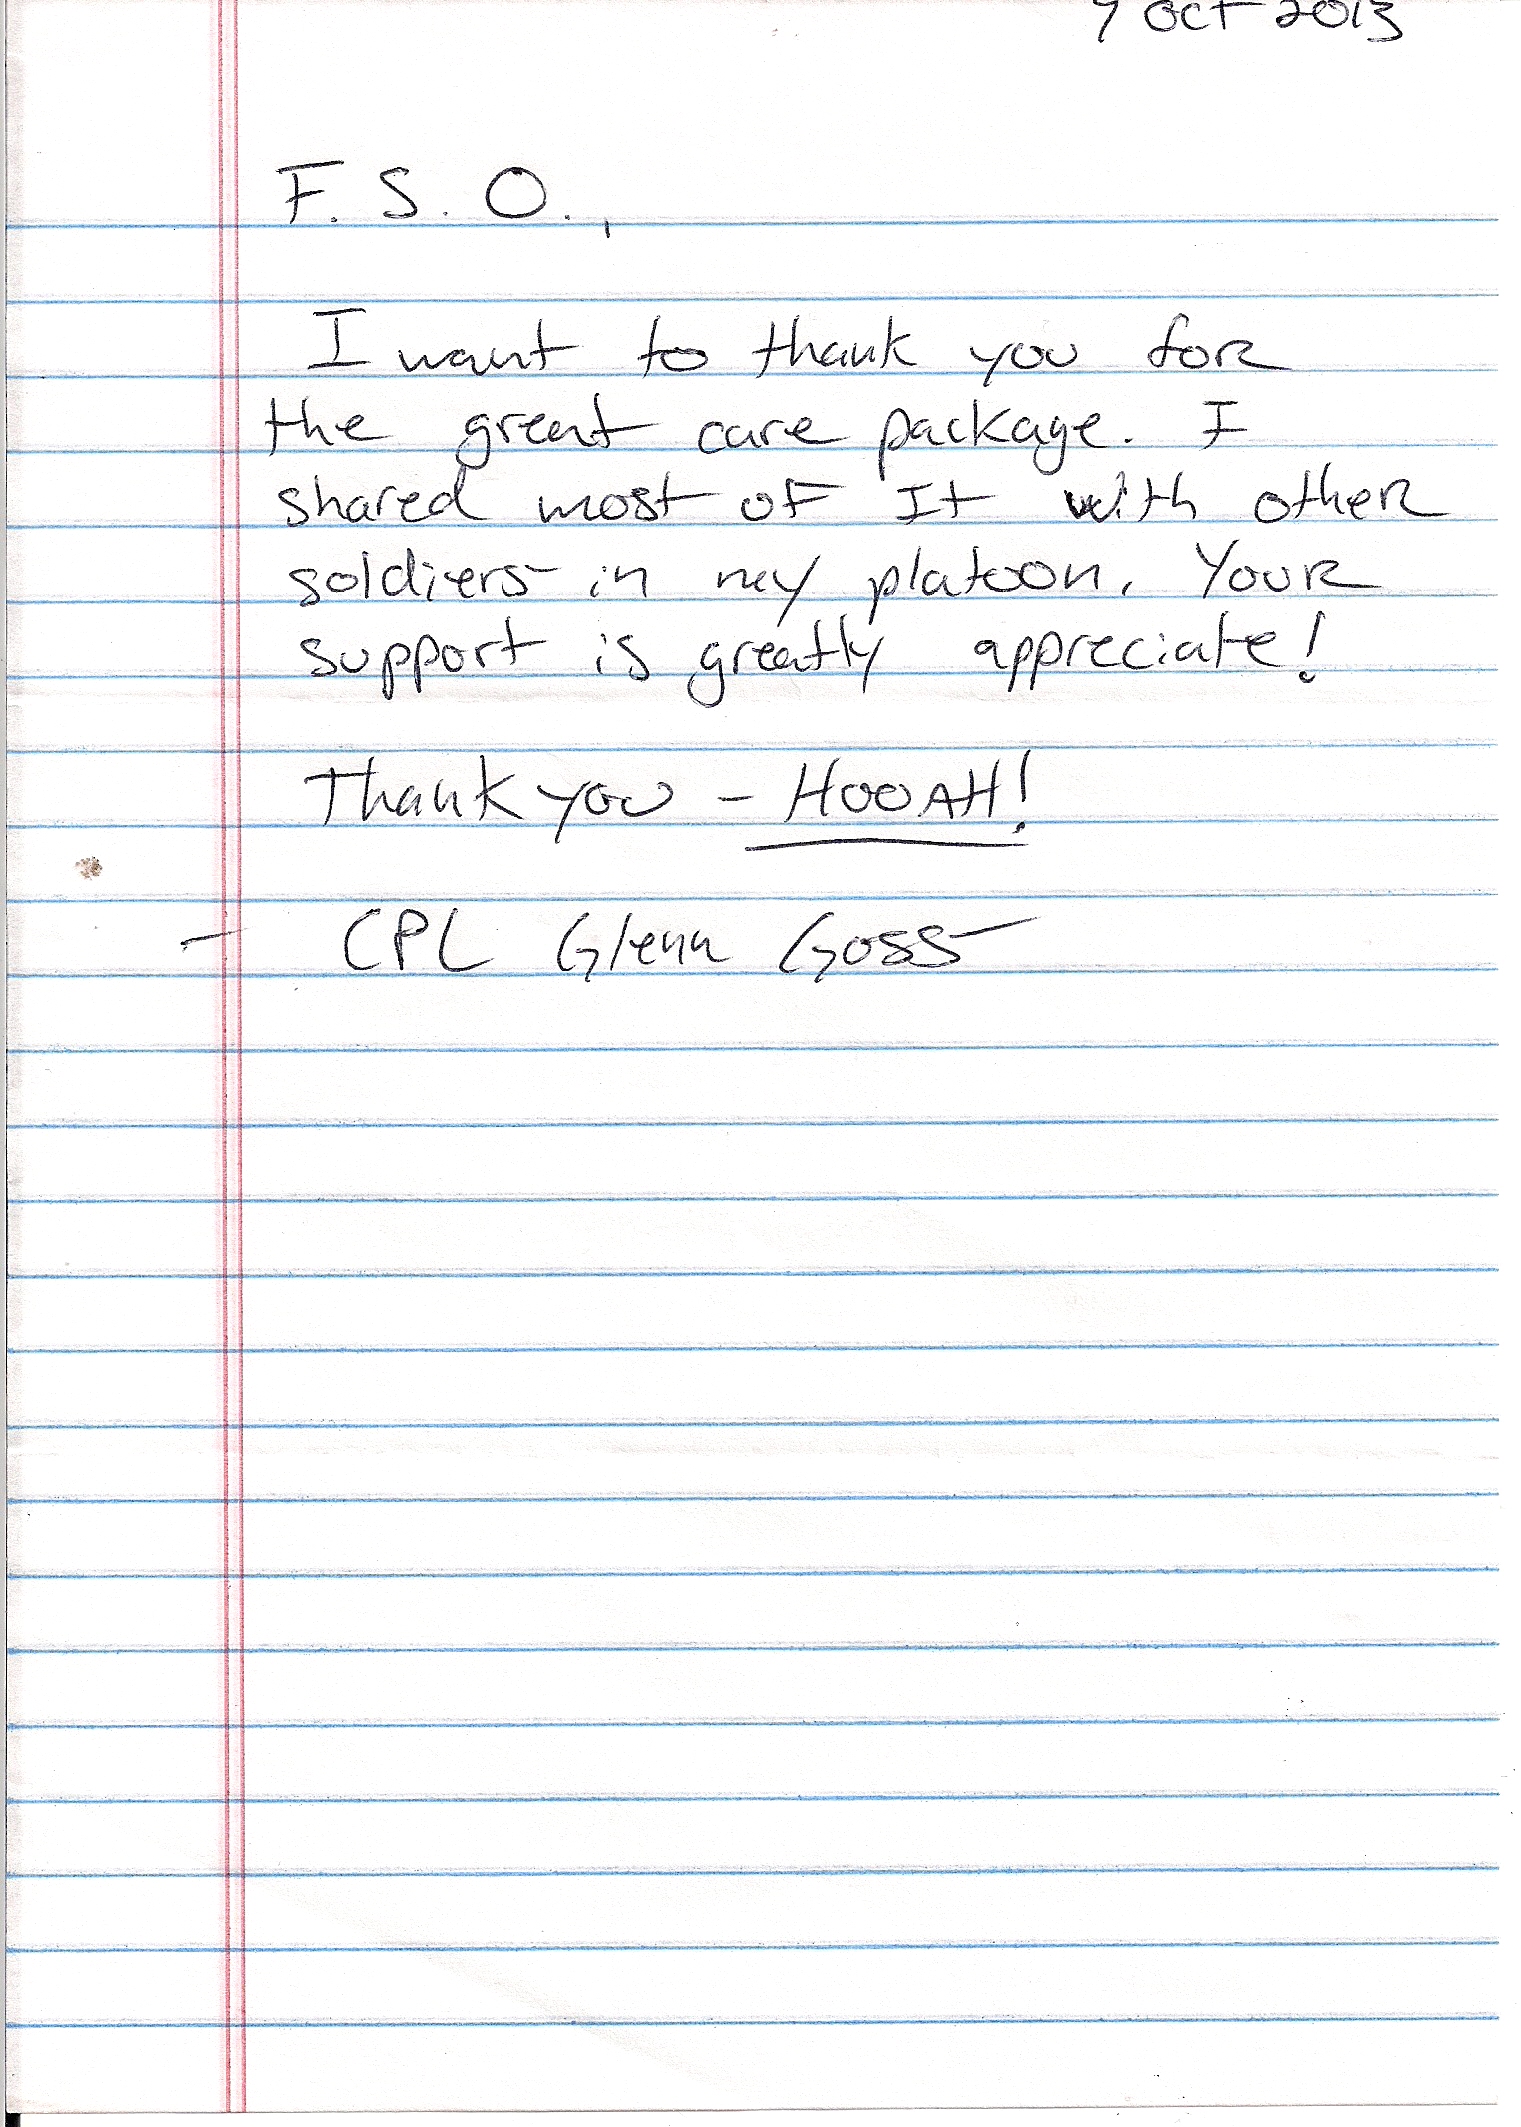 Oct 2013
F. S. O.,
I want to thank you for
the great care package. I
shared most of It with other
soldiers in my platoon. Your
support is greatly appreciate!
Thank you - HOOAH!
- CPL Glenn Goss